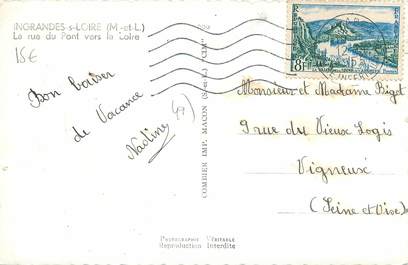 INGRANDES s-LOIRE (M.-et-L.)
La rue du Pont vers la Loire
15€
Bon baiser
de Vacance
Nadine
(49)
COMBIER IMP. MACON (S.-et-L.) "CIM"
PHOTOGRAPHIE VÉRITABLE
Reproduction Interdite
8F
Monsieur et Madame Biget
9 rue du Vieux Logis
Vigneux
(Seine et Oise)